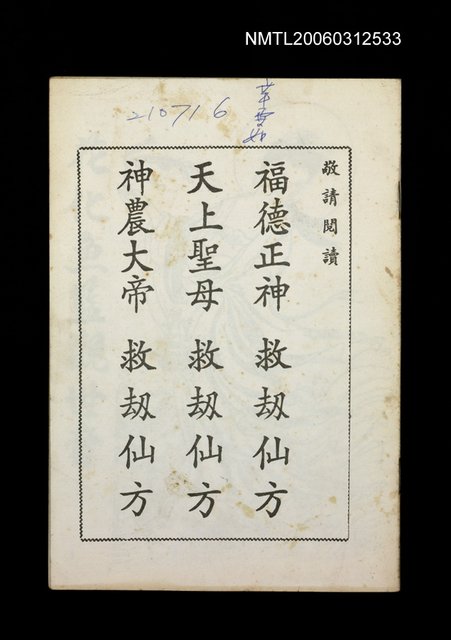 NMTL20060312533
210716
敬請閱讀
福德正神 救刼仙方
天上聖母 救刼仙方
神農大帝 救刼仙方